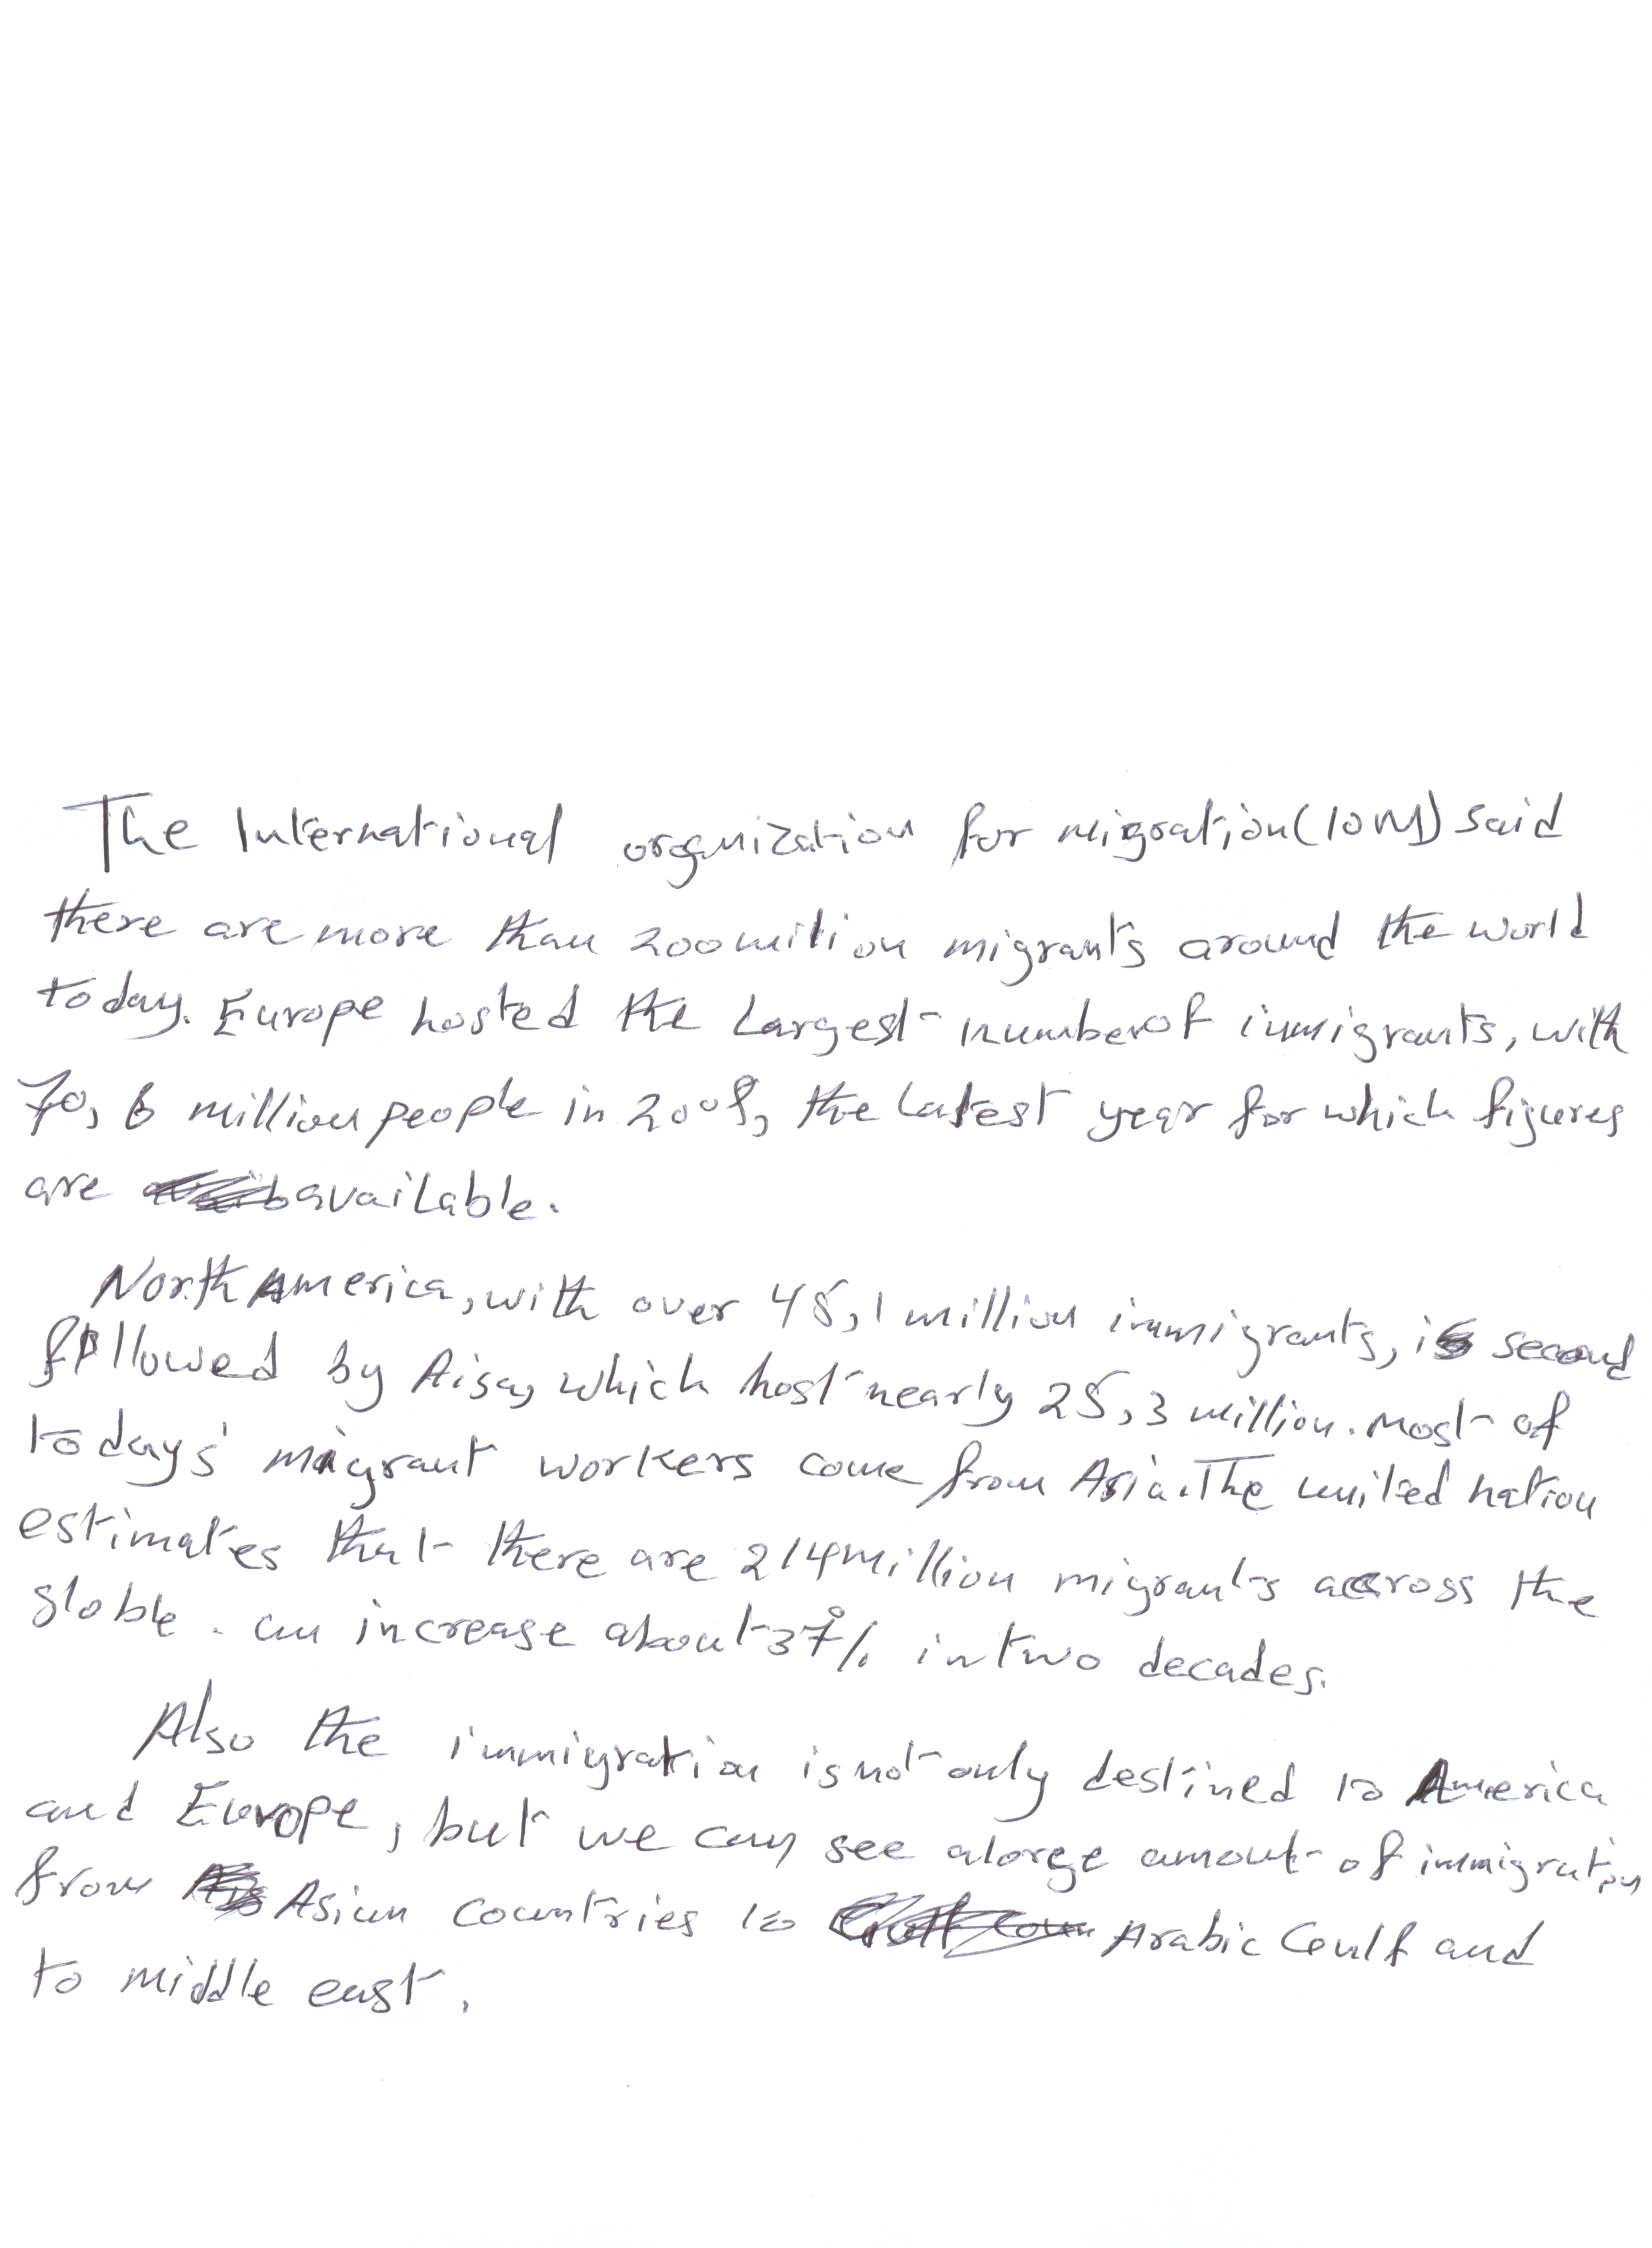 The International organization for migration (IOM) said
there are more than 200 million migrants around the world
today. Europe hosted the Largest number of immigrants, with
70, 6 million people in the Latest year for which figures
are available.
North America, with over 45,1 million immigrants, is second
followed by Aisa, which host nearly 25,3 million. Most of
todays' migrant workers come from Asia. The united nation
estimates that there are 214 million migrants across the
globle. an increase about 37% in two decades.
Also the immigration is not only destined to America
and Europe, but we can see a large amout of immigration
from Asian countries to Arabic Gulf and
to middle east.